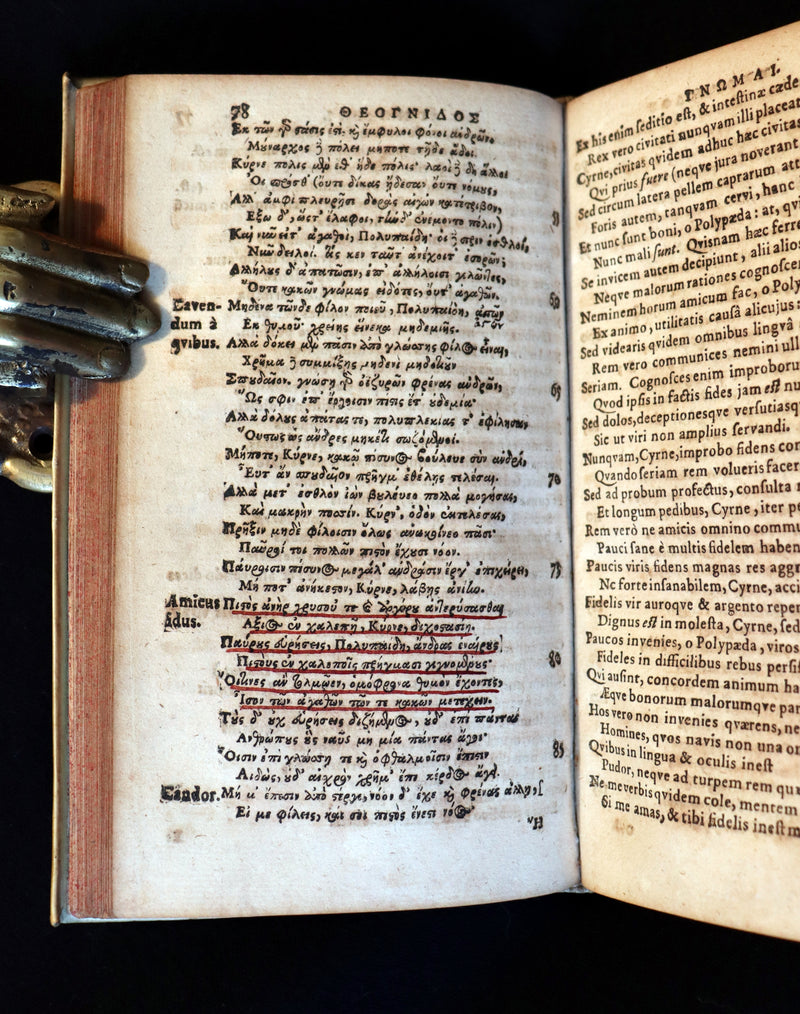 78 ΘΕΟΓΝΙΔΟΣ
Ἐκ τῶν γὰρ στάσις ἐστὶ καὶ ἔμφυλοι φόνοι ἀνδρῶν,
Μούναρχος δὲ πόλει μήποτε τῇδε ἅδοι.
Κύρνε πόλις μὲν ἔθ' ἥδε πόλις· λαοὶ δὲ δὴ ἄλλοι
Οἳ πρόσθ' (οὔτε δίκας ᾔδεσαν οὔτε νόμους,
Ἀλλ' ἀμφὶ πλευρῇσι δορὰς αἰγῶν κατέτριβον,
Ἔξω δ', ὥστ' ἔλαφοι, τήνδ' ἐνέμοντο πόλιν)
Καὶ νῦν εἰσ' ἀγαθοὶ, Πολυπαΐδη· οἱ δὲ πρὶν ἐσθλοὶ,
Νῦν δειλοί. τίς κεν ταῦτ' ἀνέχοιτ' ἐσορῶν;
Ἀλλήλους δ' ἀπατῶσιν, ἐπ' ἀλλήλοισι γελῶντες,
Οὔτε κακῶν γνώμας εἰδότες, οὔτ' ἀγαθῶν. 60
Caven- Μηδένα τῶνδε φίλον ποιοῦ, Πολυπαΐδη, ἀστῶν
dum à Ἐκ θυμοῦ· χρείης εἵνεκα μηδεμιῆς.
qvibus. Ἀλλὰ δόκει μὲν πᾶσιν ἀπὸ γλώσσης φίλος εἶναι,
Χρῆμα δὲ συμμίξῃς μηδενὶ μηδοτιοῦν
Σπουδαῖον. γνώσῃ γὰρ ὀϊζυρῶν φρένας ἀνδρῶν, 65
Ὥς σφιν ἐπ' ἔργοισιν πίστις ἔτ' οὐδεμία·
Ἀλλὰ δόλους ἀπάτας τε, πολυπλεκίας τ' ἐφίλησαν
Οὕτως ὡς ἄνδρες μηκέτι σωζόμενοι.
Μήποτε, Κύρνε, κακῷ πίσυνος βούλευε σὺν ἀνδρὶ,
Εὖτ' ἂν σπουδαῖον πρῆγμ' ἐθέλῃς τελέσαι. 70
Ἀλλὰ μετ' ἐσθλὸν ἰὼν βουλεύεο πολλὰ μογῆσαι,
Καὶ μακρὴν ποσσὶν, Κύρν', ὁδὸν ἐκτελέσαι,
Πρῆξιν μηδὲ φίλοισιν ὅλως ἀνακοίνεο πᾶσι·
Παῦροί τοι πολλῶν πιστὸν ἔχουσι νόον.
Παύροισιν πίσυνος μεγάλ' ἀνδράσιν ἔργ' ἐπιχείρει, 75
Μή ποτ' ἀνήκεστον, Κύρνε, λάβῃς ἀνίην.
Amicus Πιστὸς ἀνὴρ χρυσοῦ τε καὶ ἀργύρου ἀντερύσασθαι
fidus. Ἄξιος ἐν χαλεπῇ, Κύρνε, διχοστασίῃ.
Παύρους εὑρήσεις, Πολυπαΐδη, ἄνδρας ἑταίρους
Πιστοὺς ἐν χαλεποῖς πρήγμασι γιγνομένους· 80
Οἵτινες ἂν τολμῷεν, ὁμόφρονα θυμὸν ἔχοντες,
Ἶσον τῶν ἀγαθῶν τῶν τε κακῶν μετέχειν.
Τοὺς δ' οὐχ εὑρήσεις διζήμενος, οὐδ' ἐπὶ πάντας
Ἀνθρώπους οὓς ναῦς μὴ μία πάντας ἄγοι·
Οἷσιν ἐπὶ γλώσσῃ τε καὶ ὀφθαλμοῖσιν ἔπεστιν 85
Αἰδὼς, οὐδ' αἰσχρὸν χρῆμ' ἔπι κέρδος ἄγει.
Candor. Μή μ' ἔπεσιν ἀπὸ στέργε, νόον δ' ἔχε καὶ φρένας ἄλλῃ,
Εἴ με φιλεῖς, καί σοι πιστὸς ἔνεστι νόος·
Ἢ
ΓΝΩΜΑΙ.
Ex his enim seditio est, & intestinæ cæde
Rex vero civitati nunqvam illi placeat
Cyrne, civitas qvidem adhuc hæc civitas
Qvi prius fuere (neqve jura noverant
Sed circum latera pellem caprarum att
Foris autem, tanqvam cervi, hanc
Et nunc sunt boni, o Polypæda: at, qv
Nunc mali sunt. Qvisnam hæc ferre
Se invicem autem decipiunt, alii alios
Neqve malorum rationes cognoscen
Neminem horum amicum fac, o Poly
Ex animo, utilitatis causâ alicujus:
Sed videaris qvidem omnibus lingvâ
Rem vero communices nemini ull
Seriam. Cognosces enim improboru
Qvod ipsis in factis fides jam est nu
Sed dolos, deceptionesqve versutiasq
Sic ut viri non amplius servandi.
Nunqvam, Cyrne, improbo fidens con
Qvando seriam rem volueris facer
Sed ad probum profectus, consulta
Et longum pedibus, Cyrne, iter p
Rem verò ne amicis omnino commu
Pauci sane è multis fidelem haben
Paucis viris fidens magnas res aggr
Ne forte insanabilem, Cyrne, acci
Fidelis vir auroqve & argento repen
Dignus est in molesta, Cyrne, sed
Paucos invenies, o Polypæda, viros
Fideles in difficilibus rebus persis
Qvi ausint, concordem animum ha
Æqve bonorum malorumqve par
Hos vero non invenies qværens, ne
Homines, qvos navis non una o
Qvibus in lingua & oculis inest
Pudor, neqve ad turpem rem qu
Ne me verbis qvidem cole, mentem
Si me amas, & tibi fidelis inest m